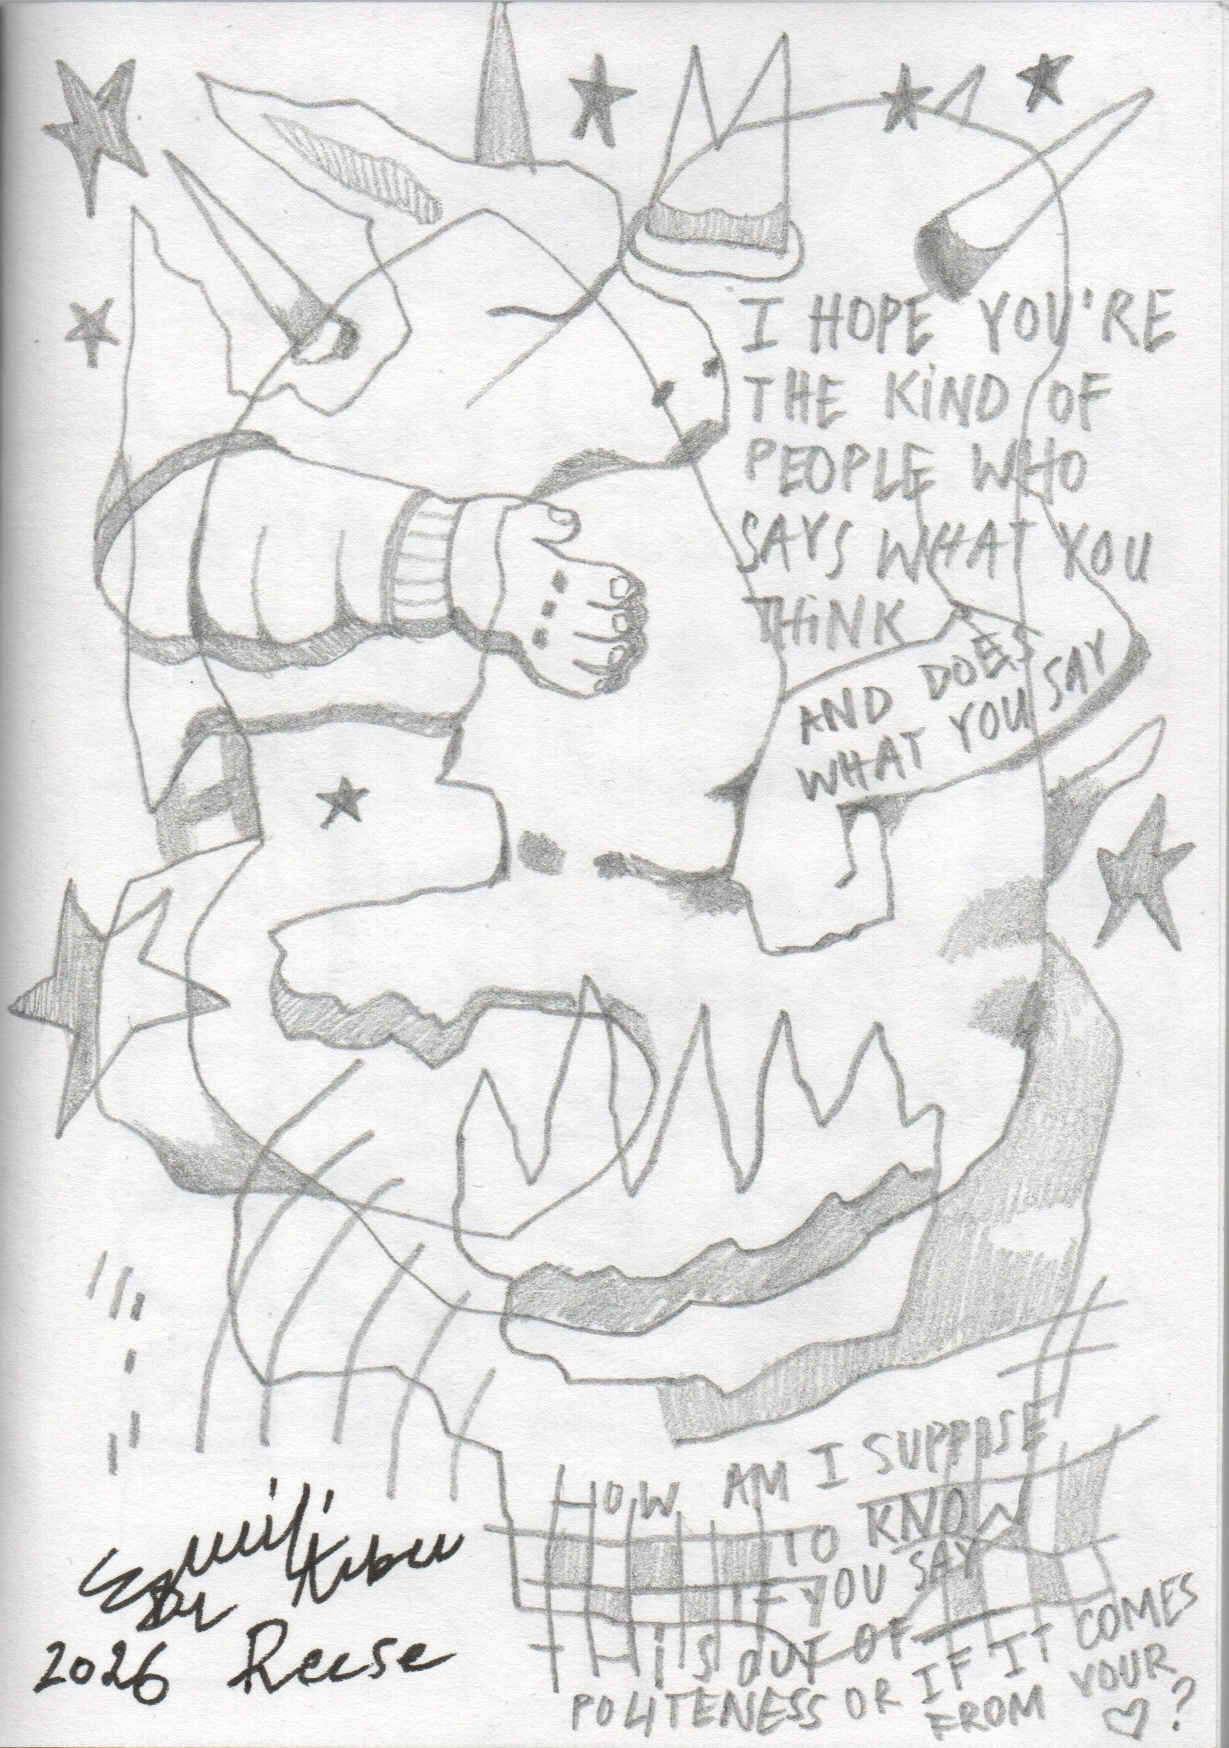 I HOPE YOU'RE
THE KIND OF
PEOPLE WHO
SAYS WHAT YOU
THINK
AND DOES
WHAT YOU SAY
HOW AM I SUPPOSE
TO KNOW
IF YOU SAY
THIS OUT OF
POLITENESS OR IF IT COMES
FROM YOUR
♡?
2026 Reese